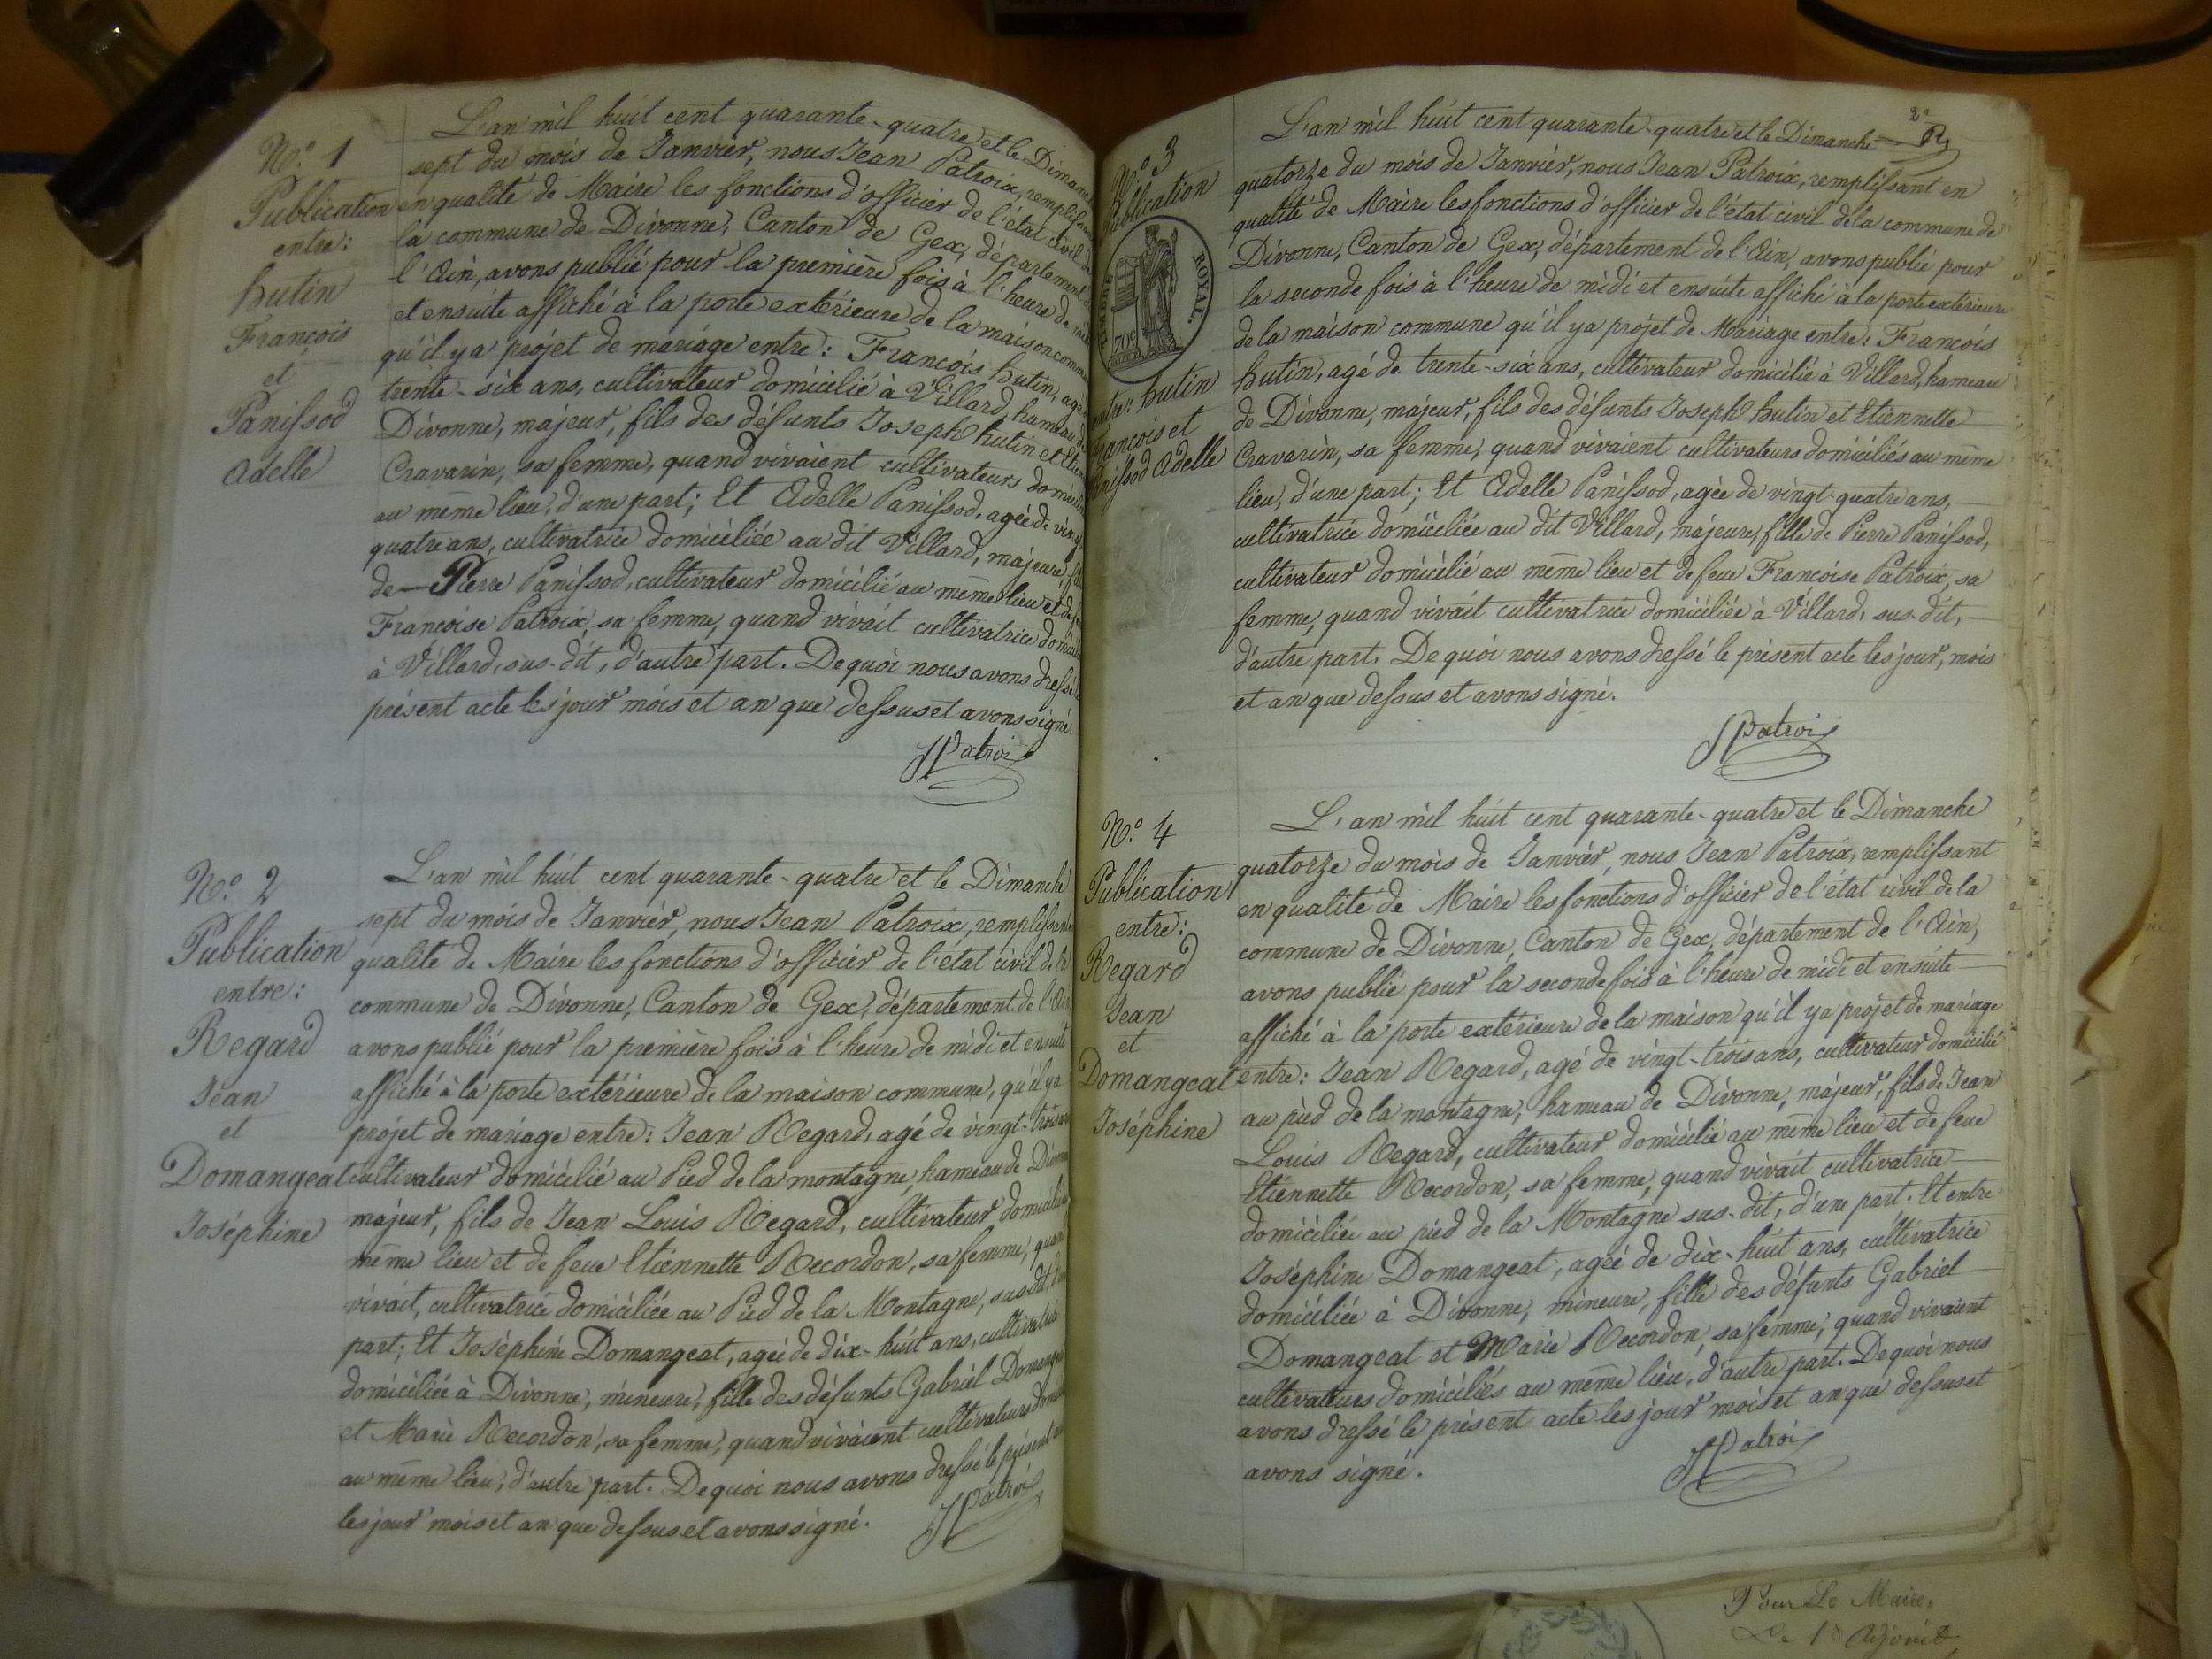 N.o 1
Publication
entre:
hutin
François
et
Panissod
Adelle
L'an mil huit cent quarante-quatre et le Dimanche
sept du mois de Janvier, nous Jean Patroix, remplissant
en qualité de Maire les fonctions d'officier de l'état civil de
la commune de Divonne, Canton de Gex, département de
l'Ain, avons publié pour la première fois à l'heure de midi
et ensuite affiché à la porte extérieure de la maison commune
qu'il y a projet de mariage entre: François hutin, agé
trente-six ans, cultivateur domicilié à Villard, hameau de
Divonne, majeur, fils des défunts Joseph hutin et Etien
Cravarin, sa femme, quand vivaient cultivateurs domiciliés
au même lieu, d'une part; Et Adelle Panissod, agée de vingt
quatre ans, cultivatrice domiciliée au dit Villard, majeure, fille
de — Pierre Panissod, cultivateur domicilié au même lieu et de feue
Françoise Patroix, sa femme, quand vivait cultivatrice domiciliée
à Villard, sus-dit, d'autre part. De quoi nous avons dressé le
présent acte les jour mois et an que dessus et avons signé.
JPatroix
N.o 2
Publication
entre:
Regard
Jean
et
Domangeat
Joséphine
L'an mil huit cent quarante-quatre et le Dimanche
sept du mois de Janvier, nous Jean Patroix, remplissant
qualité de Maire les fonctions d'officier de l'état civil de la
commune de Divonne, Canton de Gex, département de l'Ain
avons publié pour la première fois à l'heure de midi et ensuite
affiché à la porte extérieure de la maison commune, qu'il y a
projet de mariage entre: Jean Regard, agé de vingt-trois ans
cultivateur domicilié au Pied de la montagne, hameau de Divonne
majeur, fils de Jean Louis Regard, cultivateur domicilié
même lieu et de feue Etiennette Recordon, sa femme, quand
vivait, cultivatrice domiciliée au Pied de la Montagne, susdit, d'une
part; Et Joséphine Domangeat, agée de dix-huit ans, cultivatrice
domiciliée à Divonne, mineure, fille des défunts Gabriel Domangeat
et Marie Recordon, sa femme, quand vivaient cultivateurs domi
au même lieu, d'autre part. De quoi nous avons dressé le présent acte
les jour mois et an que dessus et avons signé.
JPatroix
2e
R
N.o 3
Publication
TIMBRE ROYAL.
70c
entre: hutin
François et
Panissod Adelle
L'an mil huit cent quarante-quatre et le Dimanche
quatorze du mois de Janvier, nous Jean Patroix, remplissant en
qualité de Maire les fonctions d'officier de l'état civil de la commune de
Divonne, Canton de Gex, département de l'Ain, avons publié pour
la seconde fois à l'heure de midi et ensuite affiché à la porte extérieure
de la maison commune qu'il y a projet de Mariage entre: François
hutin, agé de trente-six ans, cultivateur domicilié à Villard, hameau
de Divonne, majeur, fils des défunts Joseph hutin et Etiennette
Cravarin, sa femme, quand vivaient cultivateurs domiciliés au même
lieu, d'une part; Et Adelle Panissod, agée de vingt-quatre ans,
cultivatrice domiciliée au dit Villard, majeure, fille de Pierre Panissod,
cultivateur domicilié au même lieu et de feue Françoise Patroix, sa
femme, quand vivait cultivatrice domiciliée à Villard, sus-dit,
d'autre part. De quoi nous avons dressé le présent acte les jour, mois
et an que dessus et avons signé.
JPatroix
N.o 4
Publication
entre:
Regard
Jean
et
Domangeat
Joséphine
L'an mil huit cent quarante-quatre et le Dimanche
quatorze du mois de Janvier, nous Jean Patroix, remplissant
en qualité de Maire les fonctions d'officier de l'état civil de la
commune de Divonne, Canton de Gex, département de l'Ain,
avons publié pour la seconde fois à l'heure de midi et ensuite
affiché à la porte extérieure de la maison qu'il y a projet de mariage
entre: Jean Regard, agé de vingt-trois ans, cultivateur domicilié
au pied de la montagne, hameau de Divonne, majeur, fils de Jean
Louis Regard, cultivateur domicilié au même lieu et de feue
Etiennette Recordon, sa femme, quand vivait cultivatrice
domiciliée au pied de la Montagne sus-dit, d'une part. Et entre
Joséphine Domangeat, agée de dix-huit ans, cultivatrice
domiciliée à Divonne, mineure, fille des défunts Gabriel
Domangeat et Marie Recordon, sa femme, quand vivaient
cultivateurs domiciliés au même lieu, d'autre part. De quoi nous
avons dressé le présent acte les jour mois et an que dessus et
avons signé.
JPatroix
Pour Le Maire,
Le 1er Adjoint